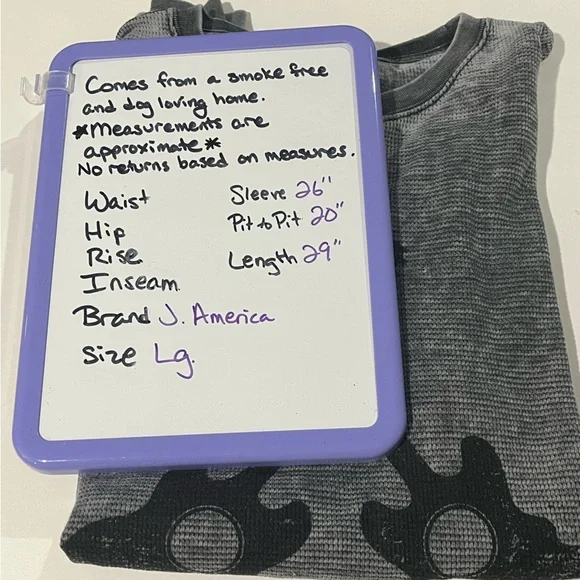 Comes from a smoke free
and dog loving home.
*Measurements are
approximate*
No returns based on measures.
Waist Sleeve 26"
Hip Pit to Pit 20"
Rise Length 29"
Inseam
Brand J. America
Size Lg.